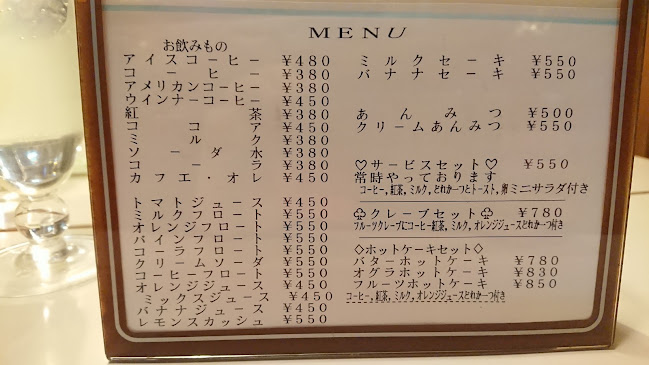 MENU
お飲みもの
アイスコーヒー ¥480
コーヒー ¥380
アメリカンコーヒー ¥380
ウインナーコーヒー ¥450
紅茶 ¥380
ココア ¥450
ミルク ¥380
ソーダ水 ¥380
コーラ ¥380
カフェ・オレ ¥450
トマトジュース ¥450
ミルクフロート ¥550
オレンジフロート ¥550
パインフロート ¥550
コーラフロート ¥550
クリームソーダ ¥550
コーヒーフロート ¥550
オレンジジュース ¥450
ミックスジュース ¥450
バナナジュース ¥450
レモンスカッシュ ¥550
ミルクセーキ ¥550
バナナセーキ ¥550
あんみつ ¥500
クリームあんみつ ¥550
♡サービスセット♡ ¥550
常時やっております
コーヒー,紅茶,ミルク,どれか一つとトースト,卵ミニサラダ付き
♧クレープセット♧ ¥780
フルーツクレープにコーヒー紅茶,ミルク,オレンジジュースどれか一つ付き
◇ホットケーキセット◇
バターホットケーキ ¥780
オグラホットケーキ ¥830
フルーツホットケーキ ¥850
コーヒー,紅茶,ミルク,オレンジジュースどれか一つ付き